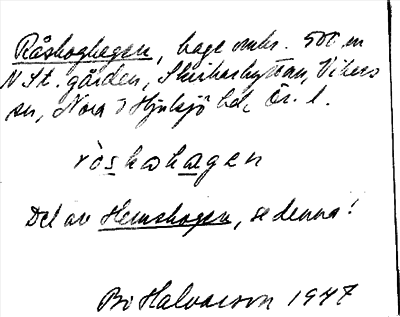 Råskoghagen, hage omkr. 500 m
N St. gården, Skrikarhyttan, Vikers
sn, Nora o Hjulsjö bd, Ör. l.
röskohagen
Del av Hemshagen, se denna!
Bo Halvarson 1947